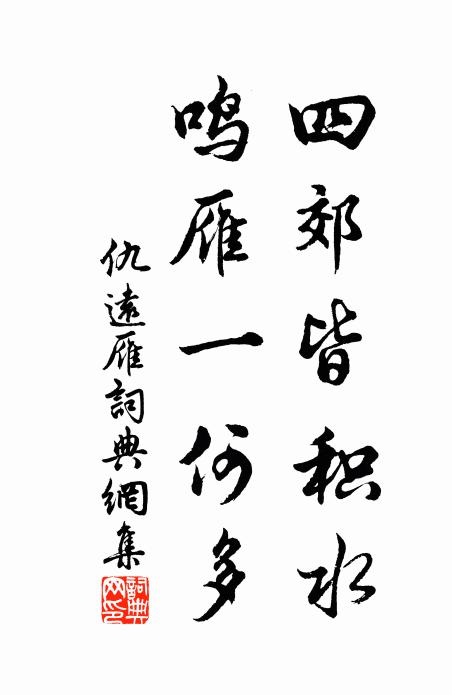 四郊皆积水
鸣雁一何多
仇遠雁詞典網集
詞典网印